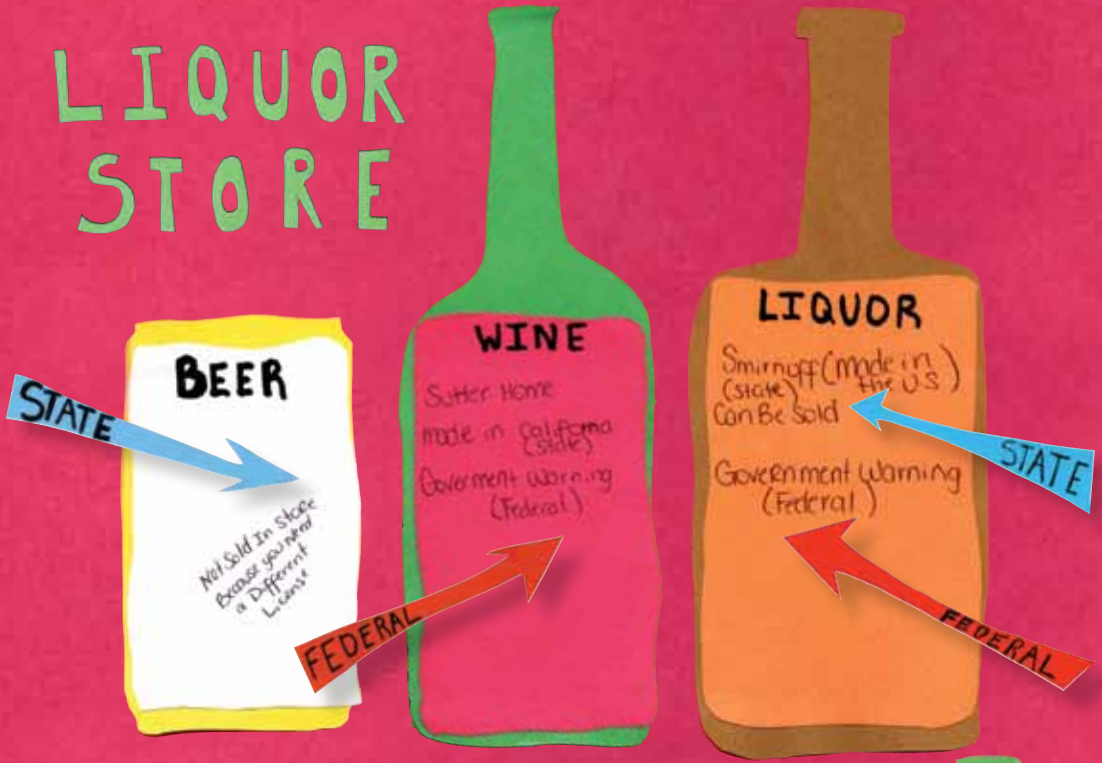 LIQUOR
STORE
BEER
STATE
Not Sold In Store
Because you need
a Different
License
WINE
Sutter Home
made in California
(State)
Goverment Warning
(Federal)
FEDERAL
LIQUOR
Smirnoff (made in
(state) the US)
Can Be Sold
STATE
Government Warning
(Federal)
FEDERAL